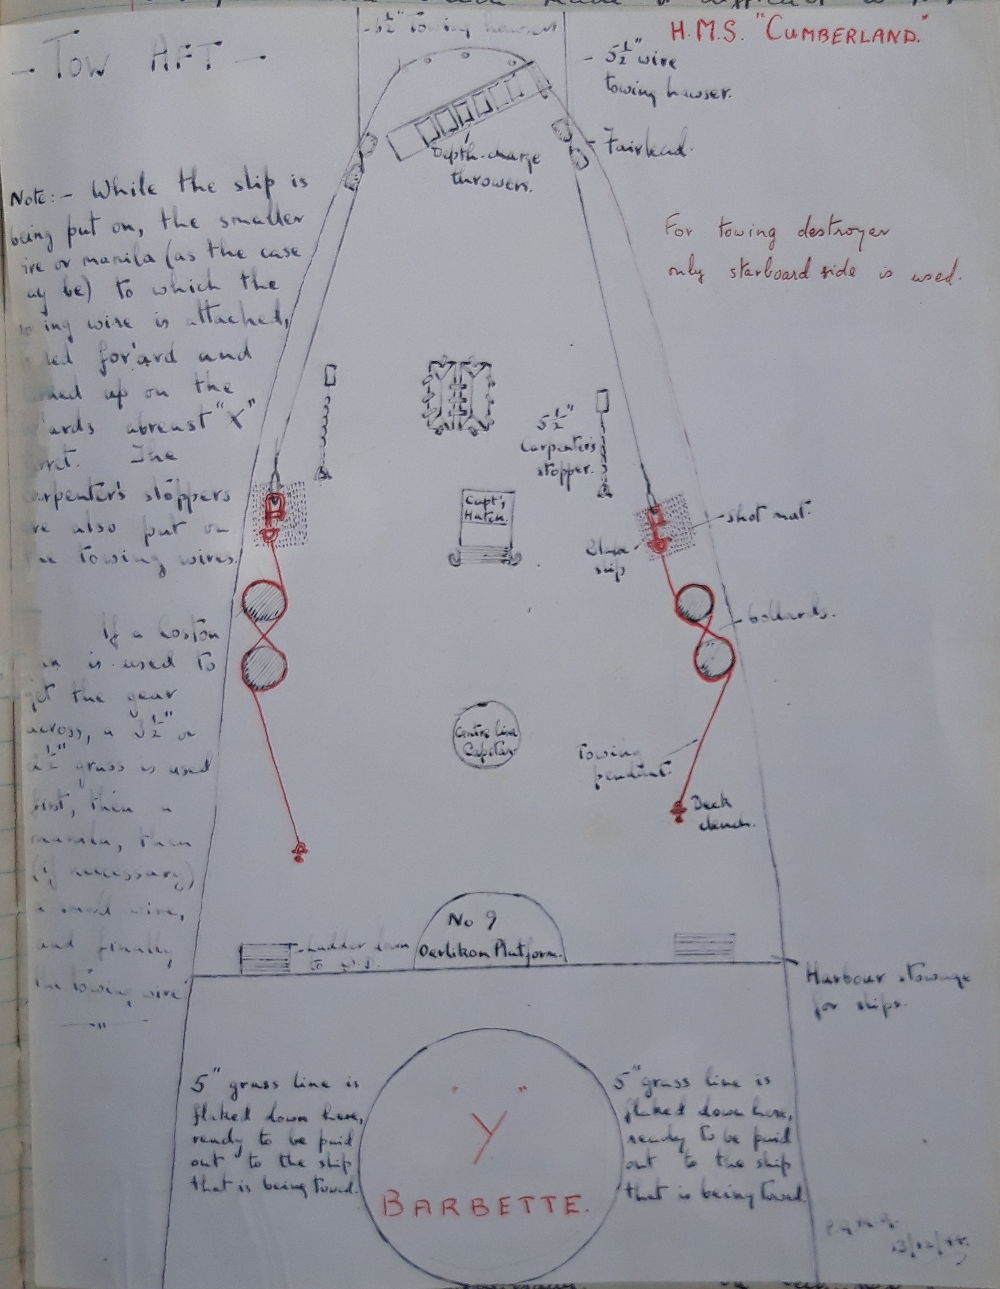 H.M.S. "CUMBERLAND."
- TOW AFT -
5½" towing hawser
- 5½" wire
towing hawser.
Depth-charge
throwers.
Fairlead.
For towing destroyer
only starboard side is used.
Note:- While the slip is
being put on, the smaller
ire or manila (as the case
ay be) to which the
ing wire is attached,
led for'ard and
up on the
ards abreast "X"
rret. The
arpenter's stoppers
re also put on
he towing wires.
If a Coston
is used to
et the gear
across, a 3½" or
2½" grass is used
first, then a
manila, then
(if necessary)
a small wire,
and finally
the towing wire
5½"
Carpenter's
stopper.
Capt's
Hatch.
shot mat.
slip
bollards.
Centre line
Capstan
Towing
pendant.
Deck
clench.
No 9
Oerlikon Platform.
Ladder down
to
Harbour stowage
for slips.
5" grass line is
flaked down here,
ready to be paid
out to the ship
that is being towed.
5" grass line is
flaked down here,
ready to be paid
out to the ship
that is being towed
"Y"
BARBETTE.